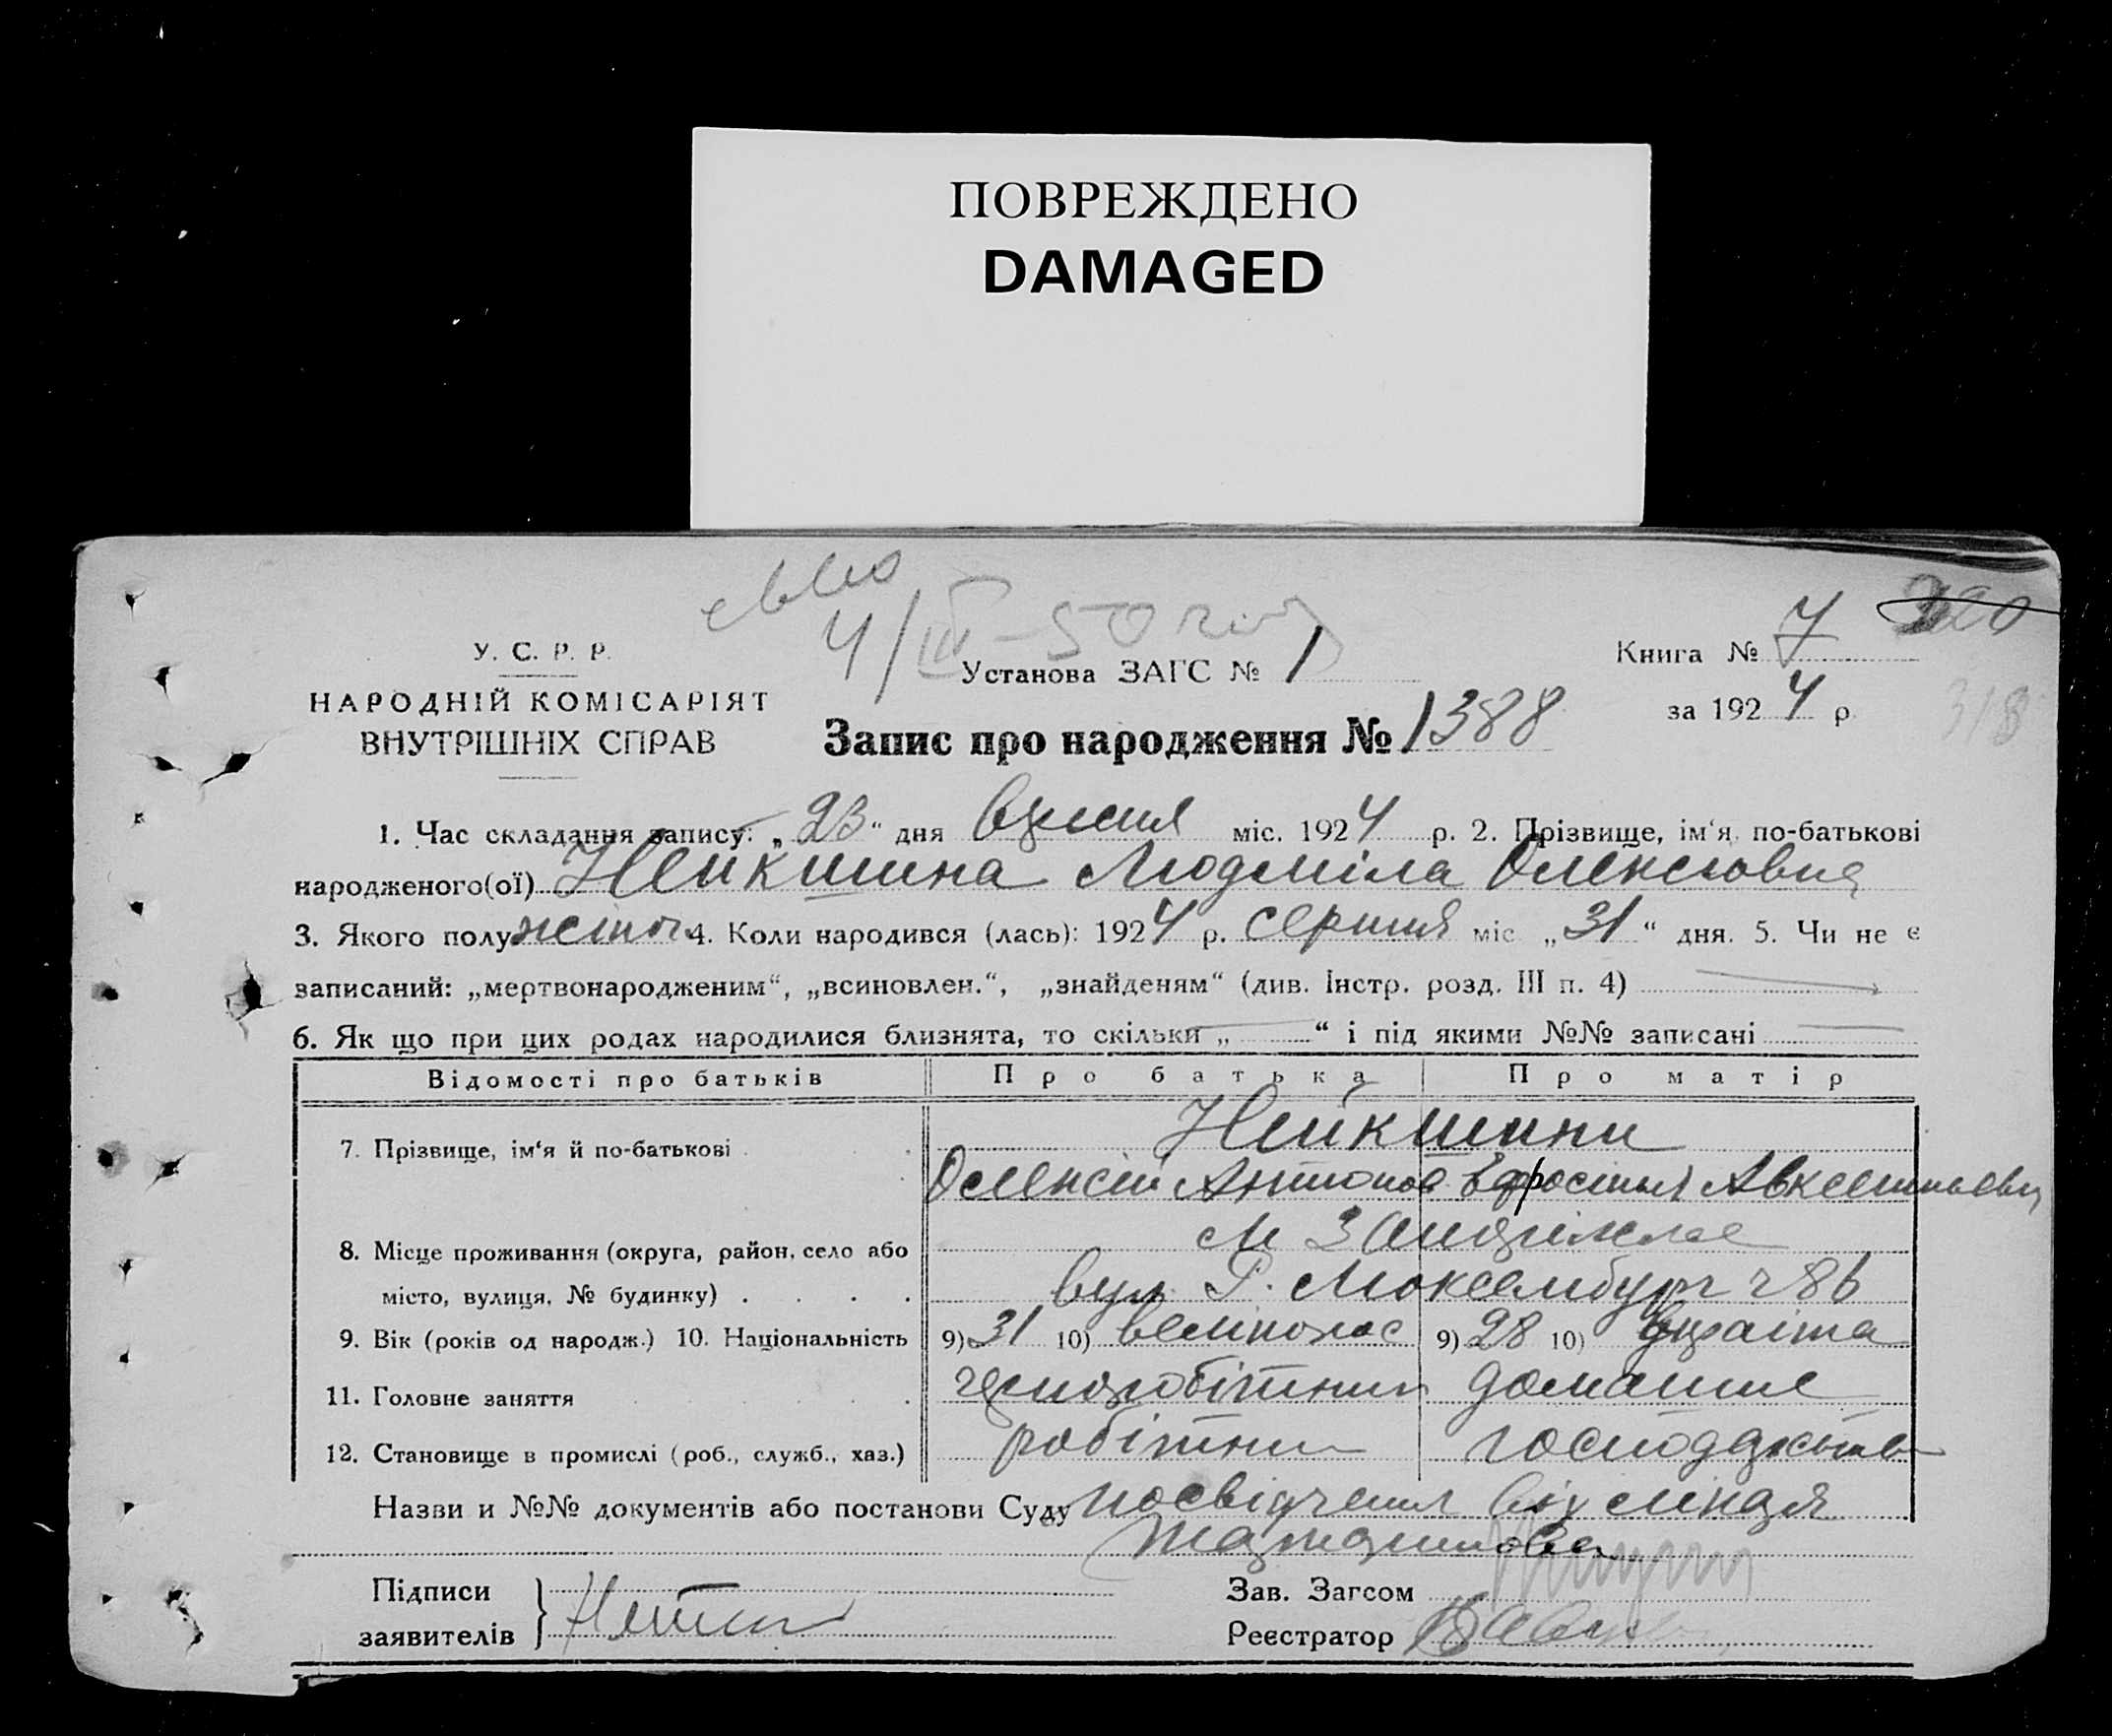 ПОВРЕЖДЕНО
DAMAGED
320
4/III-50
У. С. Р. Р.
НАРОДНІЙ КОМІСАРІЯТ
ВНУТРІШНІХ СПРАВ
Установа ЗАГС № 1
Книга № 7
за 1924 р.
318
Запис про народження № 1388
1. Час складання запису: „23“ дня вересня міс. 1924 р. 2. Прізвище, ім‘я по-батькові
народженого(ої) Нейкшина Людміла Олексіовна
3. Якого полу жіноч. 4. Коли народився (лась): 1924 р. серпня міс „31“ дня. 5. Чи не є
записаний: „мертвонародженим“, „всиновлен.“, „знайденям“ (див. Інстр. розд. III п. 4)
6. Як що при цих родах народилися близнята, то скільки „ “ і під якими №№ записані
Відомості про батьків Про батька Про матір
7. Прізвище, ім‘я й по-батькові Нейкшини
Олексій Антонов Єфросинія Авксентьевн
8. Місце проживання (округа, район, село або м Запоріжже
місто, вулиця, № будинку) вул. Р. Люксембург 86
9. Вік (років од народж.) 10. Національність 9) 31 10) 9) 28 10)
11. Головне заняття домашнє
12. Становище в промислі (роб., служб., хаз.) робітник господарство
Назви и №№ документів або постанови Суду посвідчення
Підписи
заявителів
Зав. Загсом
Реєстратор